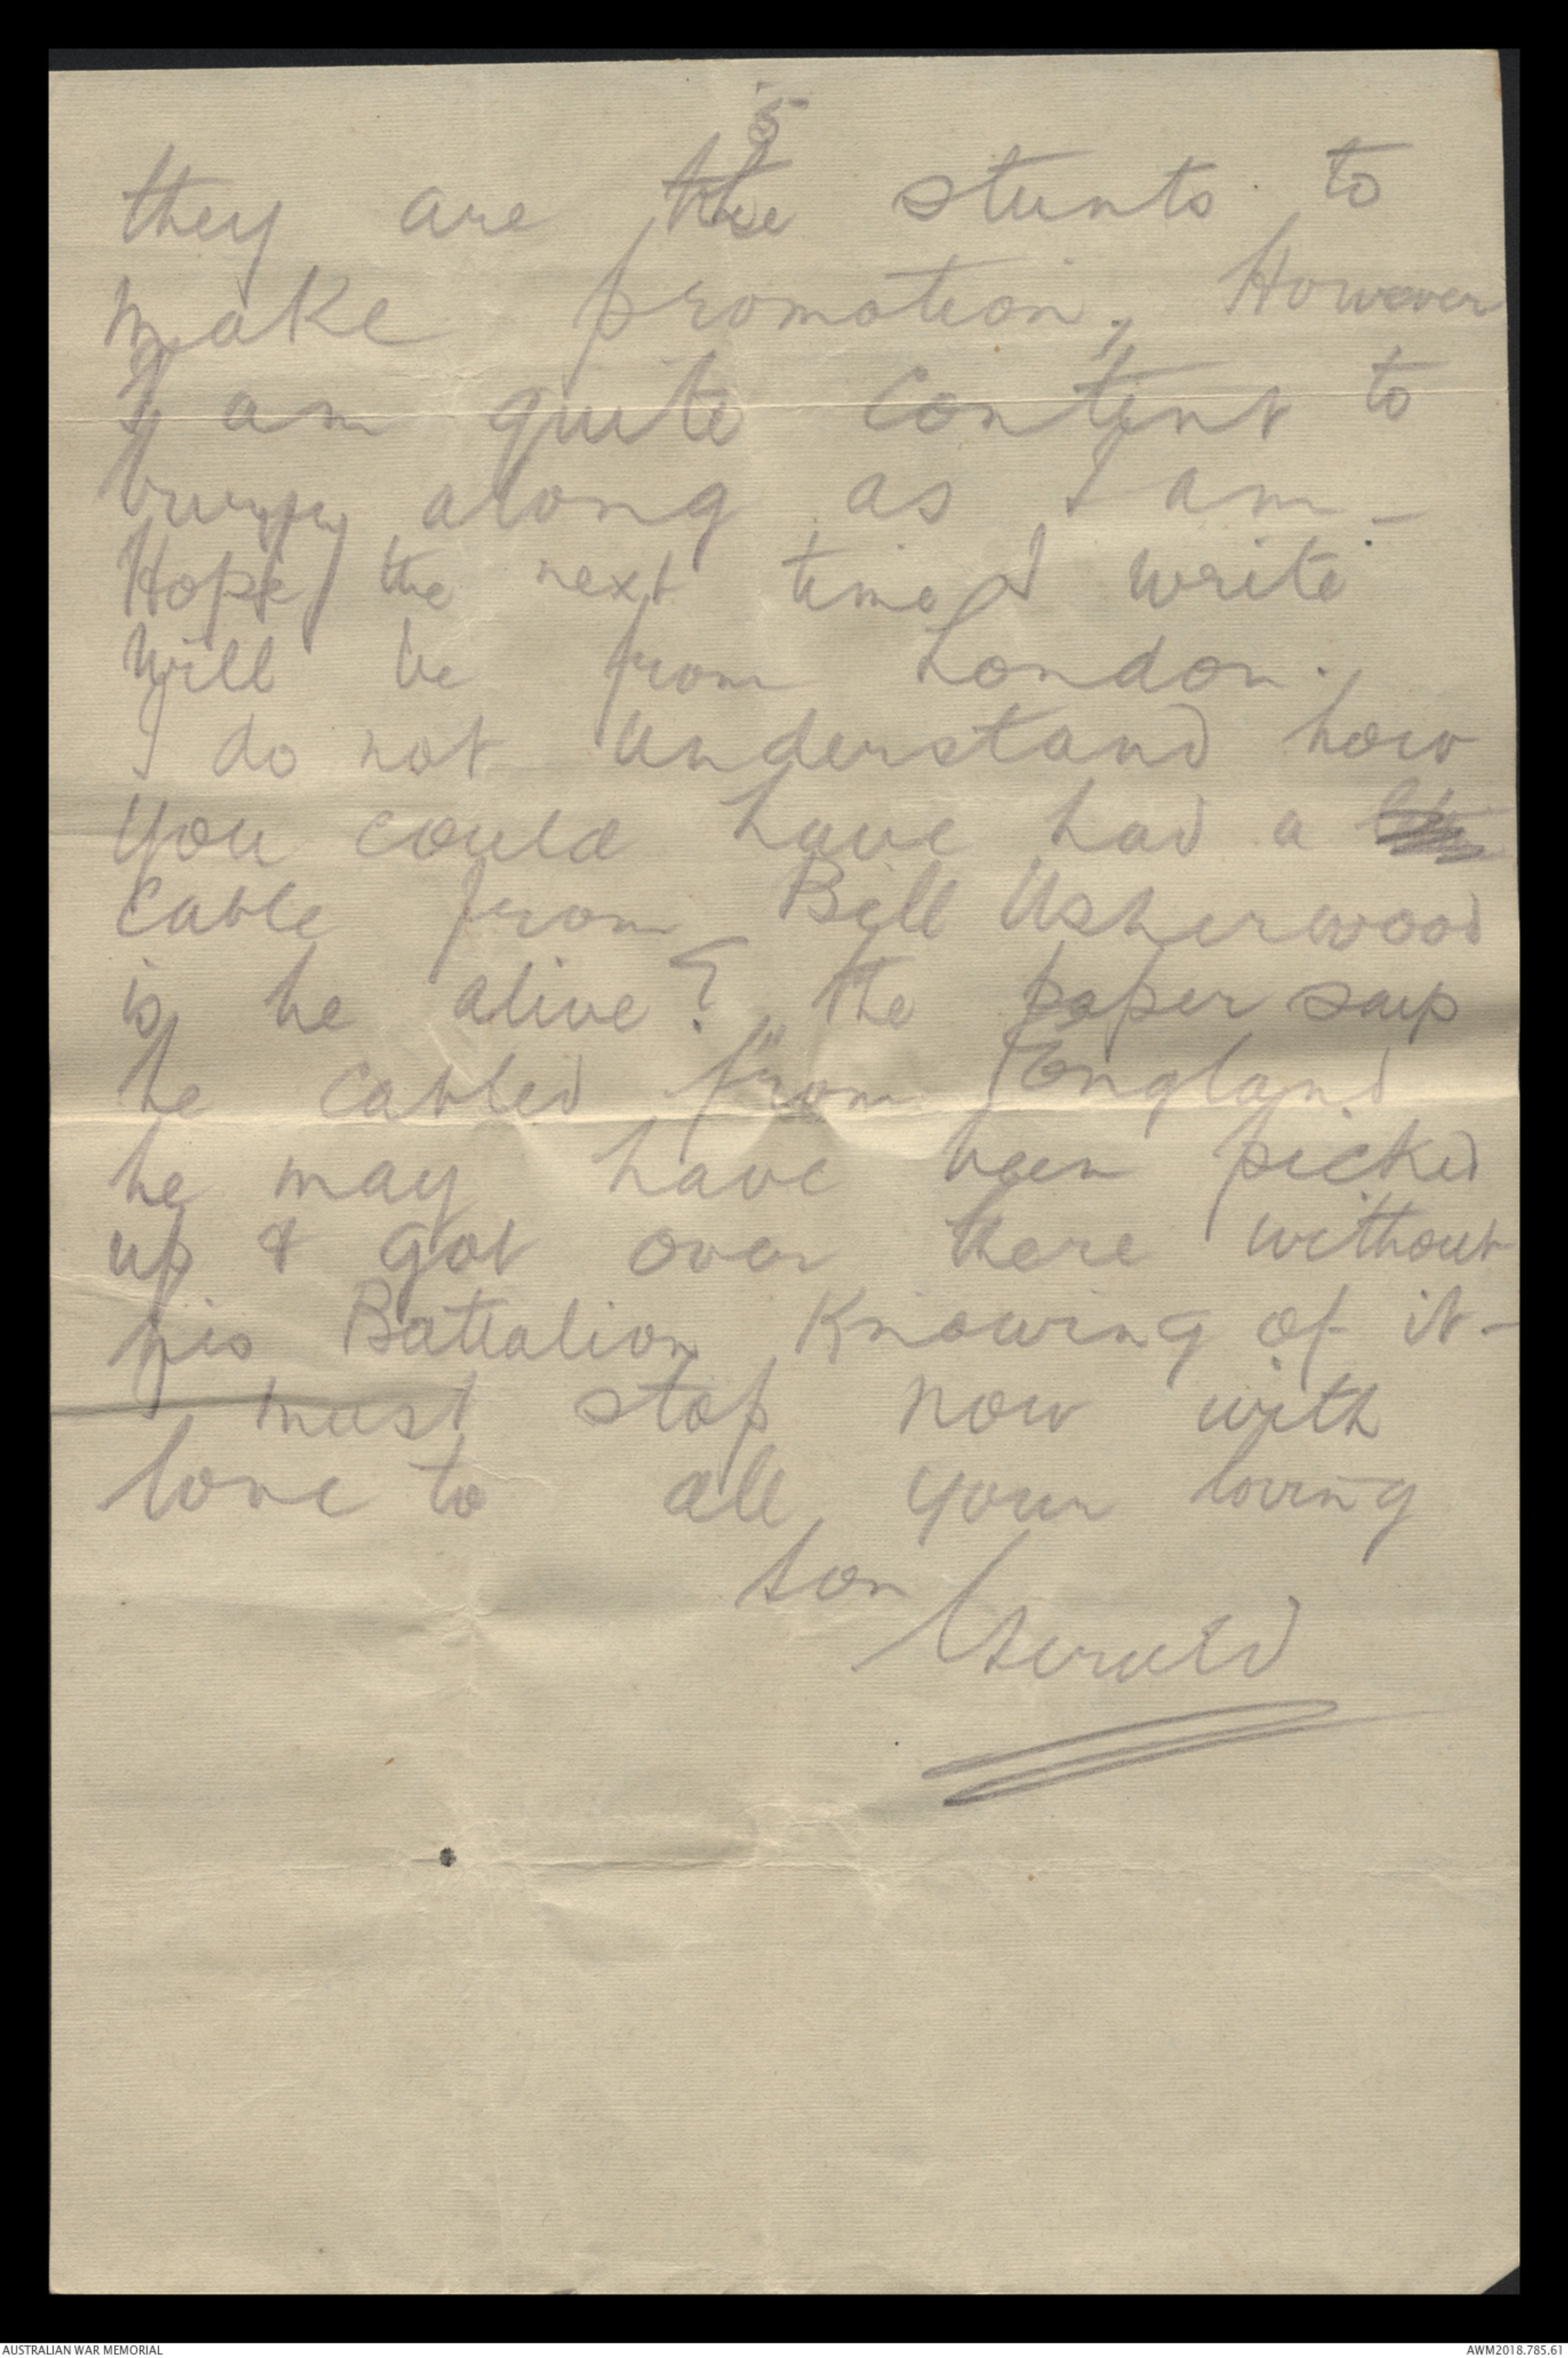 5
they are the stunts to
make promotion, However
I am quite content to
buzz along as I am -
Hope the next time I write
will be from London.
I do not understand how
you could have had a
cable from Bill Usherwood
is he alive? the paper says
he cabled "from England
he may have been picked
up & got over there without
his Battalion Knowing of it -
must stop now with
love to all your loving
son Gerald
AUSTRALIAN WAR MEMORIAL
AWM2018.785.61